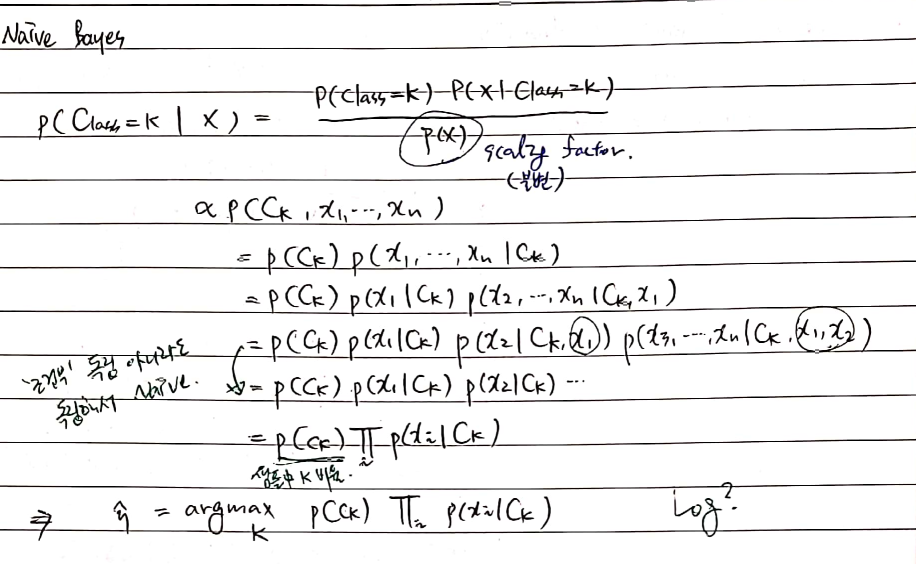 Naïve Bayes
P(Class=k | X) = P(Class=k) P(X | Class=k) / P(X)
scaling factor.
(불변)
∝ P(Ck, x1, ..., xn)
= p(Ck) p(x1, ..., xn | Ck)
= p(Ck) p(x1 | Ck) p(x2, ..., xn | Ck, x1)
= p(Ck) p(x1 | Ck) p(x2 | Ck, x1) p(x3, ..., xn | Ck, x1, x2)
'조건부' 독립 아니라도
독립해서 Naïve.
= p(Ck) p(x1 | Ck) p(x2 | Ck) ...
= p(Ck) ∏i p(xi | Ck)
샘플中 K 비율.
⇒ ŷ = argmax k p(Ck) ∏i p(xi | Ck)
Log?